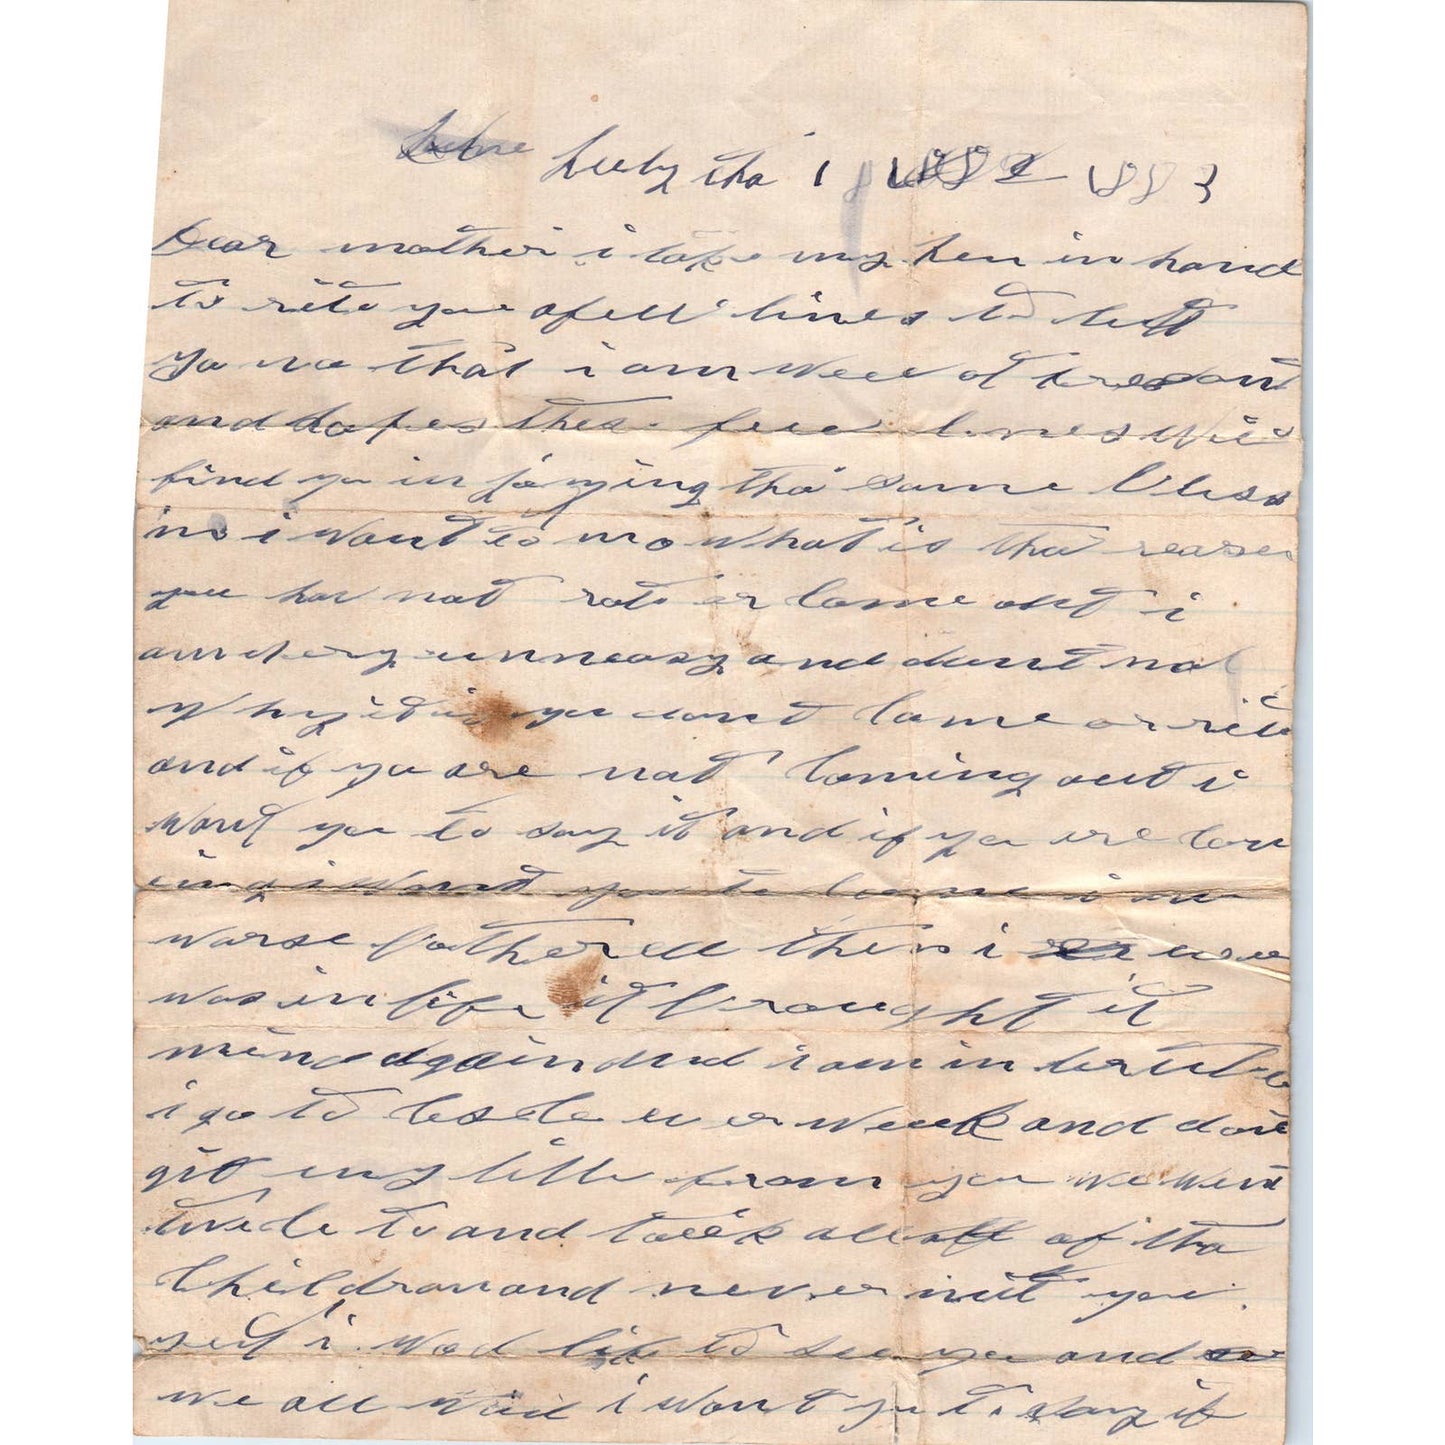 July tha 1 1883
Dear mother i take my pen in hand
to rite you afeW lines to lett
you no that i am Well at presant
and hopes these few lines Will
find you in joying tha same Bless
ing i Want to no What is tha reason
you hav not rote or Come out i
am very unneasy and dount no
Why it is you dount Come or rite
and if you are not Coming out i
Want you to say it and if you are Com
ing i Want you to Come i am
Warse Bothered then i ever
Was in life it Braught it
mind again and i am in
i go to ever Week and dont
git any letter from you We Went
twice to and took all of tha
Children and never mit you
yet i Wod like to see you and
We all Wod i Want you to say if